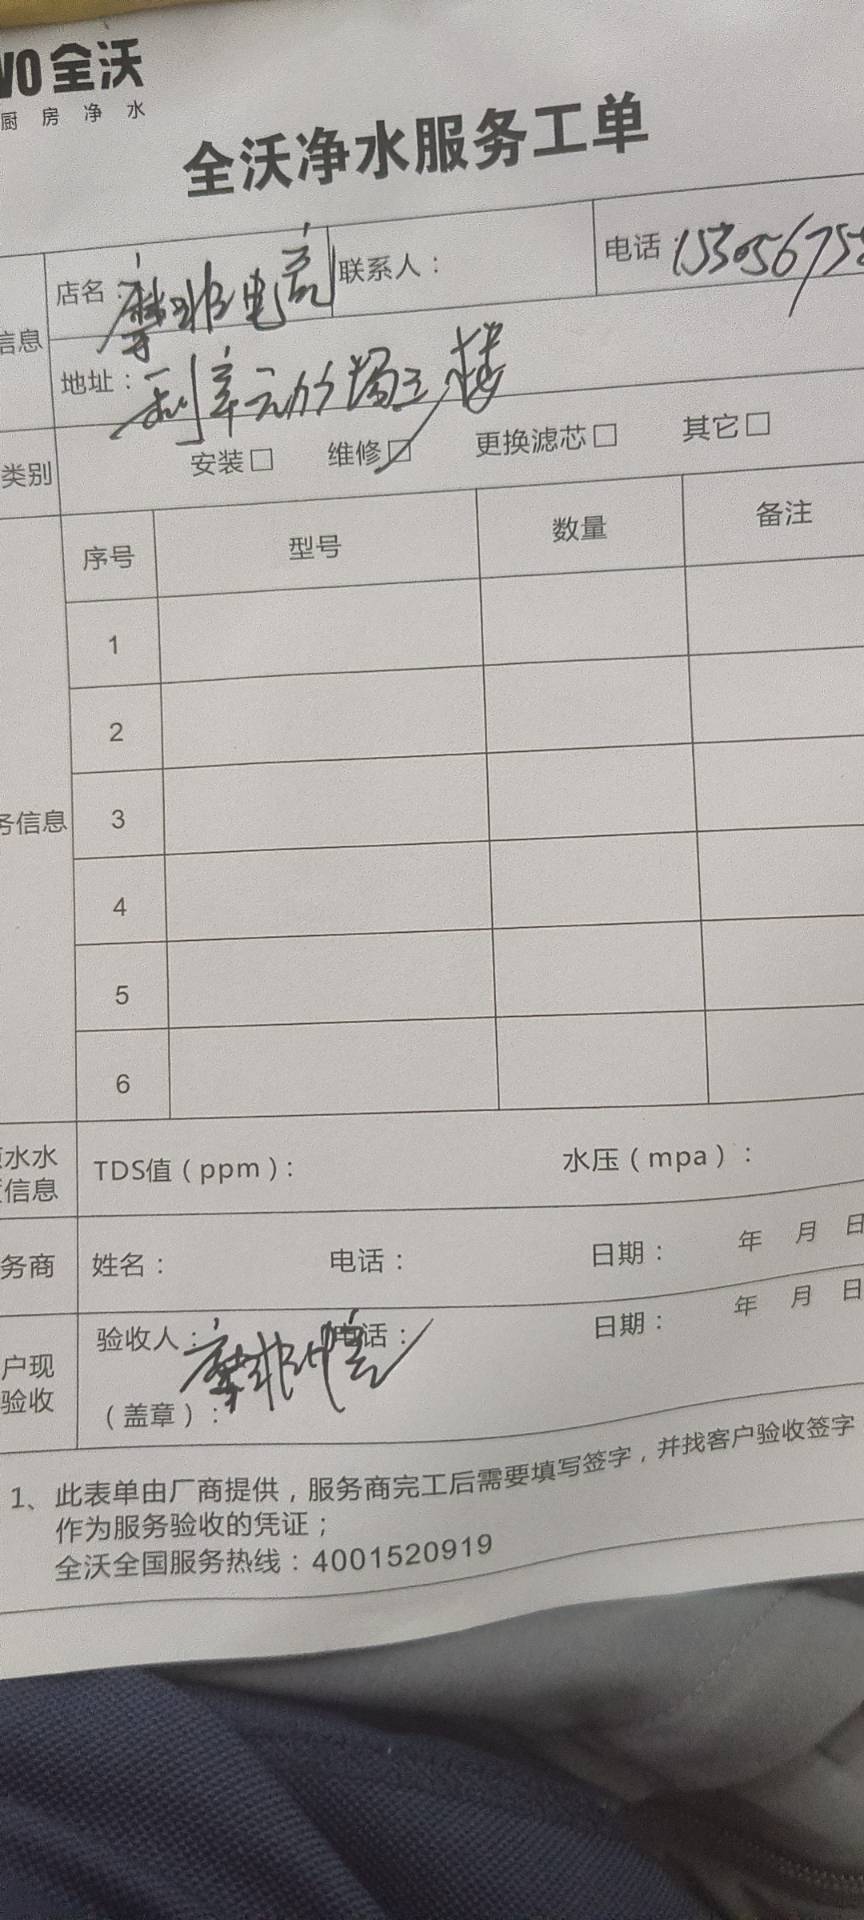 VO全沃
厨房净水
全沃净水服务工单
信息
店名：摩非电竞
联系人：
电话：153056758
地址：利辛 广场三楼
类别
安装□ 维修☑ 更换滤芯□ 其它□
序号 型号 数量 备注
1
2
3
务信息
4
5
6
水水
信息
TDS值（ppm）： 水压（mpa）：
务商
姓名： 电话： 日期： 年 月 日
户现
验收
验收人：摩非电竞 电话： 日期： 年 月 日
（盖章）：
1、此表单由厂商提供，服务商完工后需要填写签字，并找客户验收签字
作为服务验收的凭证；
全沃全国服务热线：4001520919